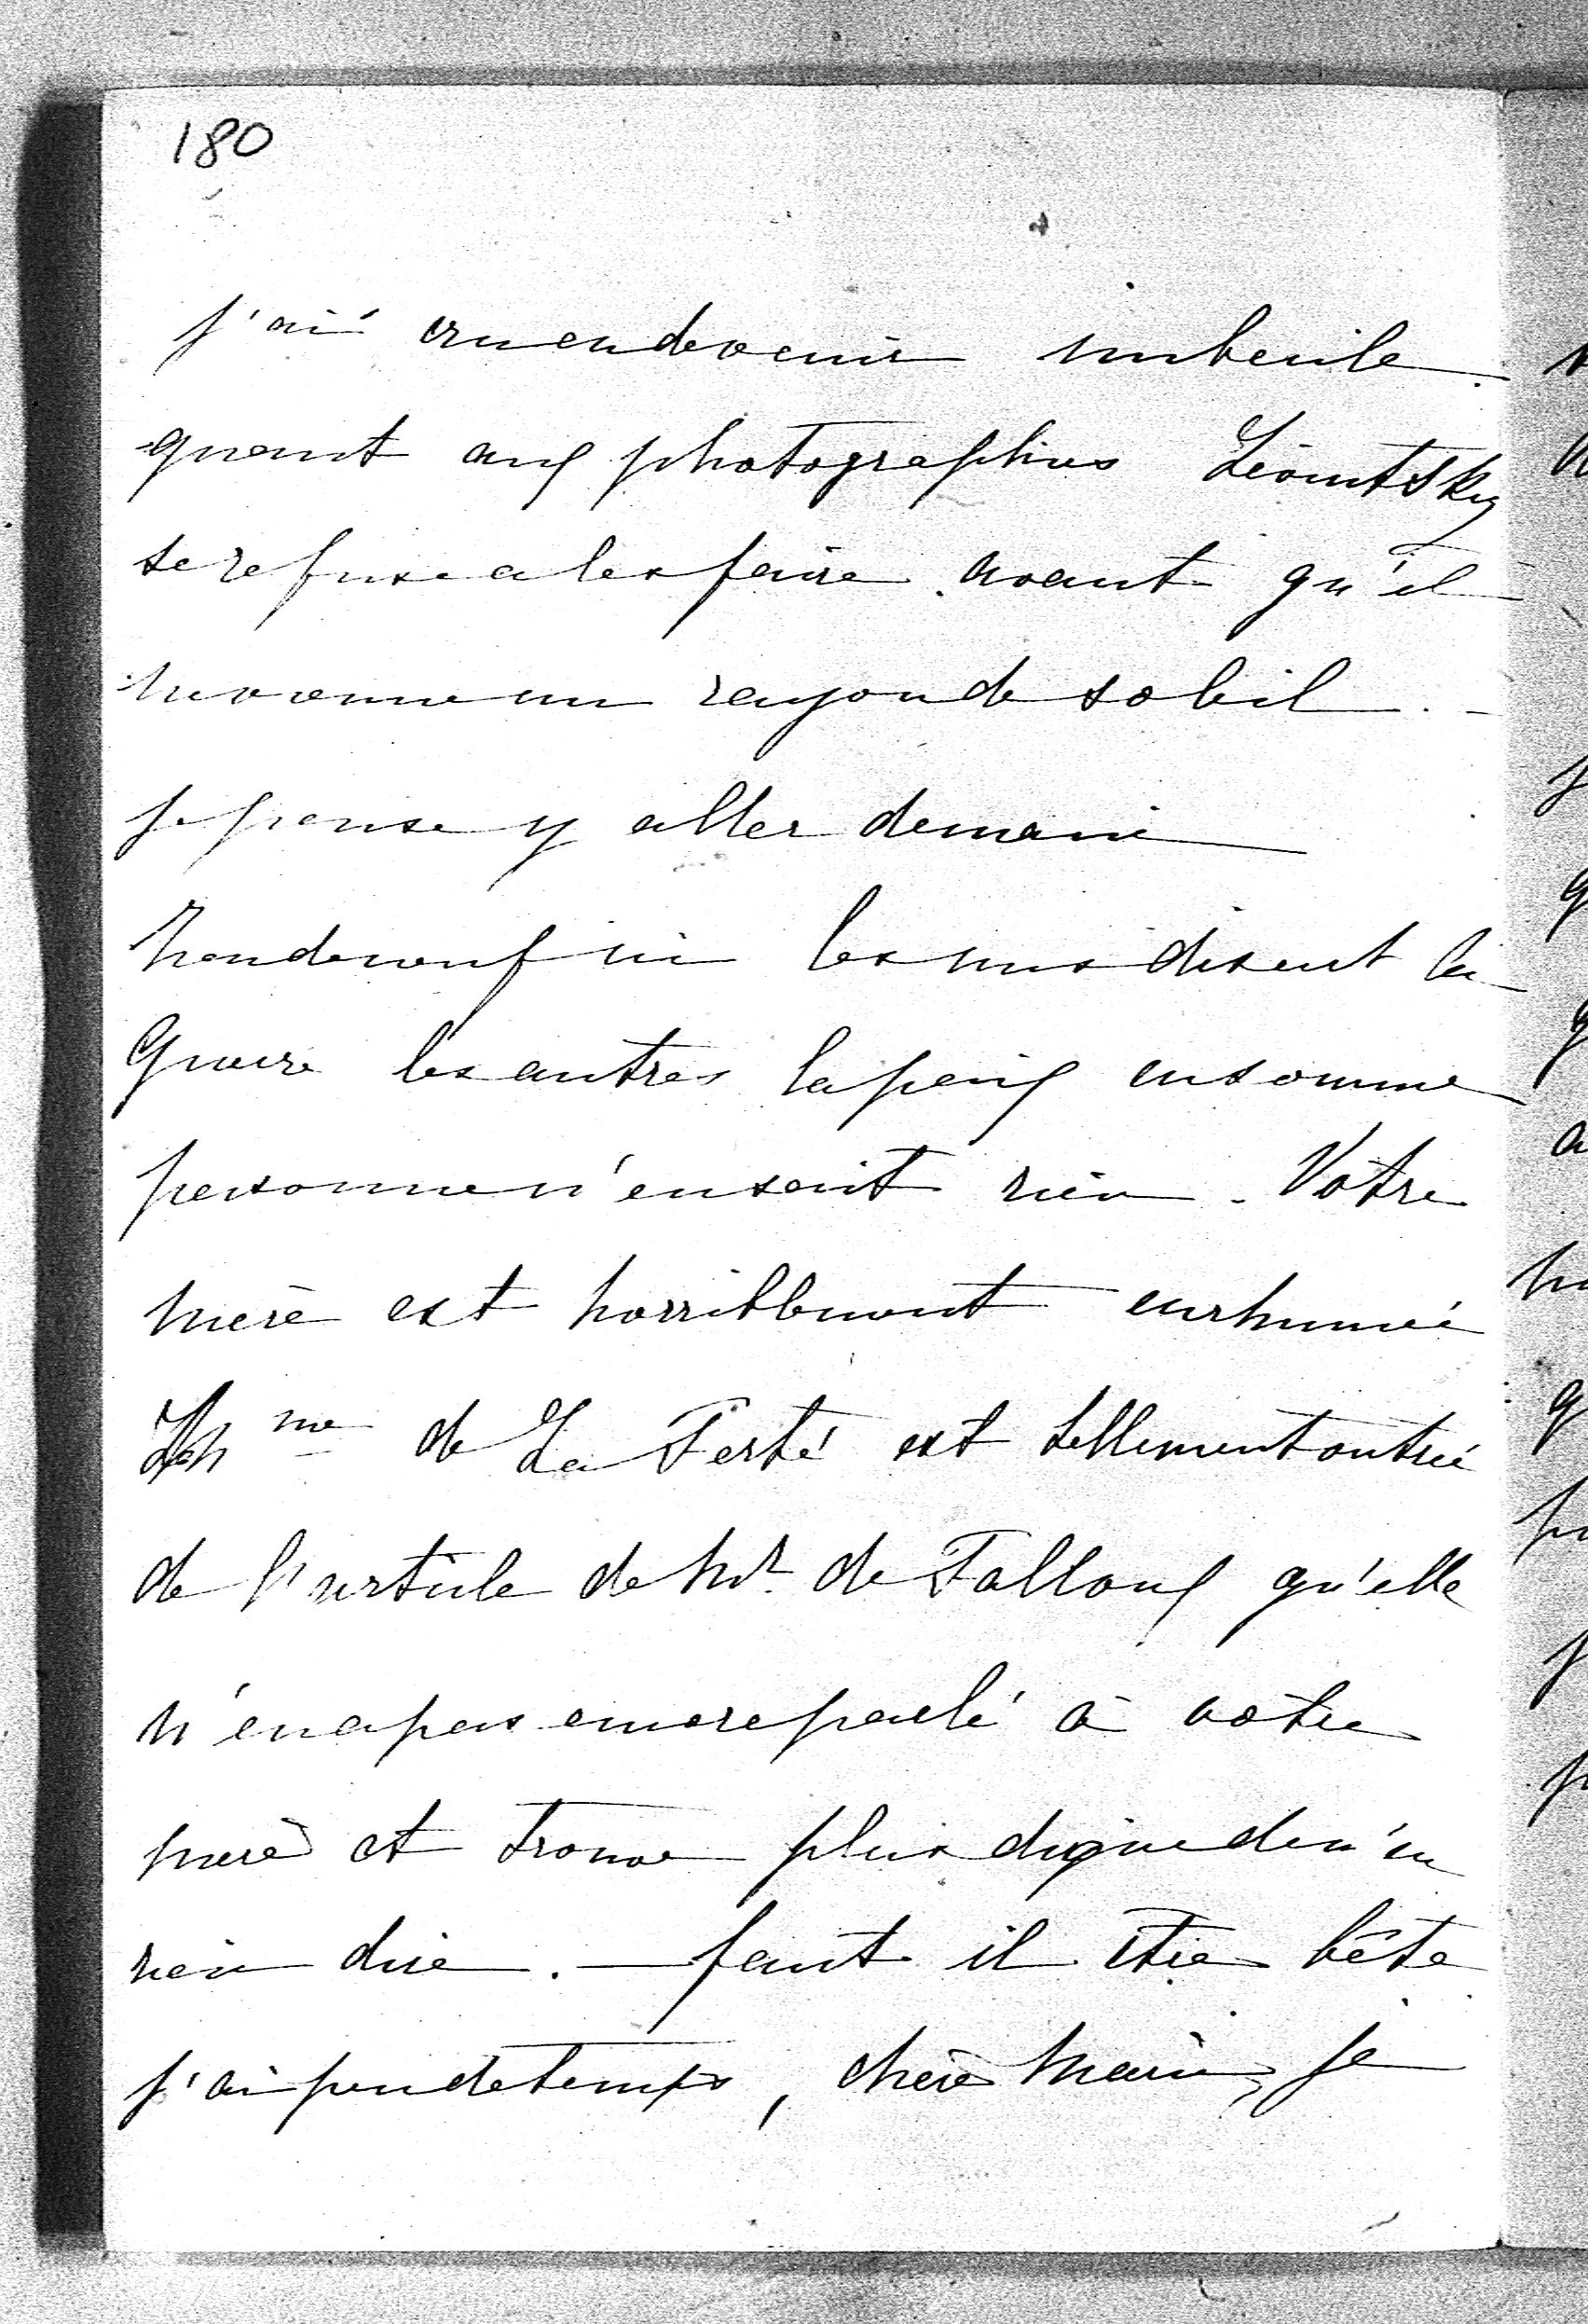 180
j'ai cru en devenir imbecile.
quant aux photographies Léontsky
se refuse a les faire avant qu'il
ne vienne un rayon de soleil. -
je pense y aller demain
rien de neuf ici les uns disent la
Guerre les autres la paix en somme
personne n'en sait rien. Votre
merè est horriblement enrhumée
Mme de La Ferté est tellement outrée
de l'article de Mr. de Falloux qu'elle
n'en a pas encore parlé à votre
merè et trouve plus digne de n'en
rien dire. — faut il être bête
j'ai peu de temps, cherè Marie, je